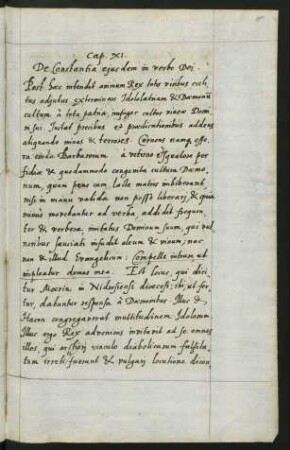 Cap. XI.
De Constantia ejusdem in verbo Dei.
Post hac intendit animum Rex totis viribus cæli-
tus adjutus exterminare Idololatriam & Dæmonum
cultum à tota patria, impiger cultor vineæ Domi-
ni sui. Instat precibus et prædicationibus addens
aliquando minas & terrores. Cernens namque effe-
ra corda Barbarorum à veterno squalore per
fidiæ & quodammodo congenita cultura Dæmo-
num, quam pene cum lacte matris imbiberant,
nisi in manu valida non posse liberari, & quia
minus movebantur ad verba, addidit frequen-
ter & verbera imitatus Dominum suum, qui vul-
neribus sauciati infudit oleum & vinum; nec
non & illud Evangelicum: Compelle intrare ut
impleatur domus mea. Est locus, qui dici
tur Mærin in Nidrosiensi diocesi; ibi, ut fer-
tur, dabantur responsa à Dæmonibus. Illuc &
Hacon congregaverat multitudinem Idolorum.
Illuc ergo Rex adveniens invitavit ad se omnes
illos, qui vinculo diabolicarum falsita-
tum irretiti fuerunt & vulgari locutione dicun